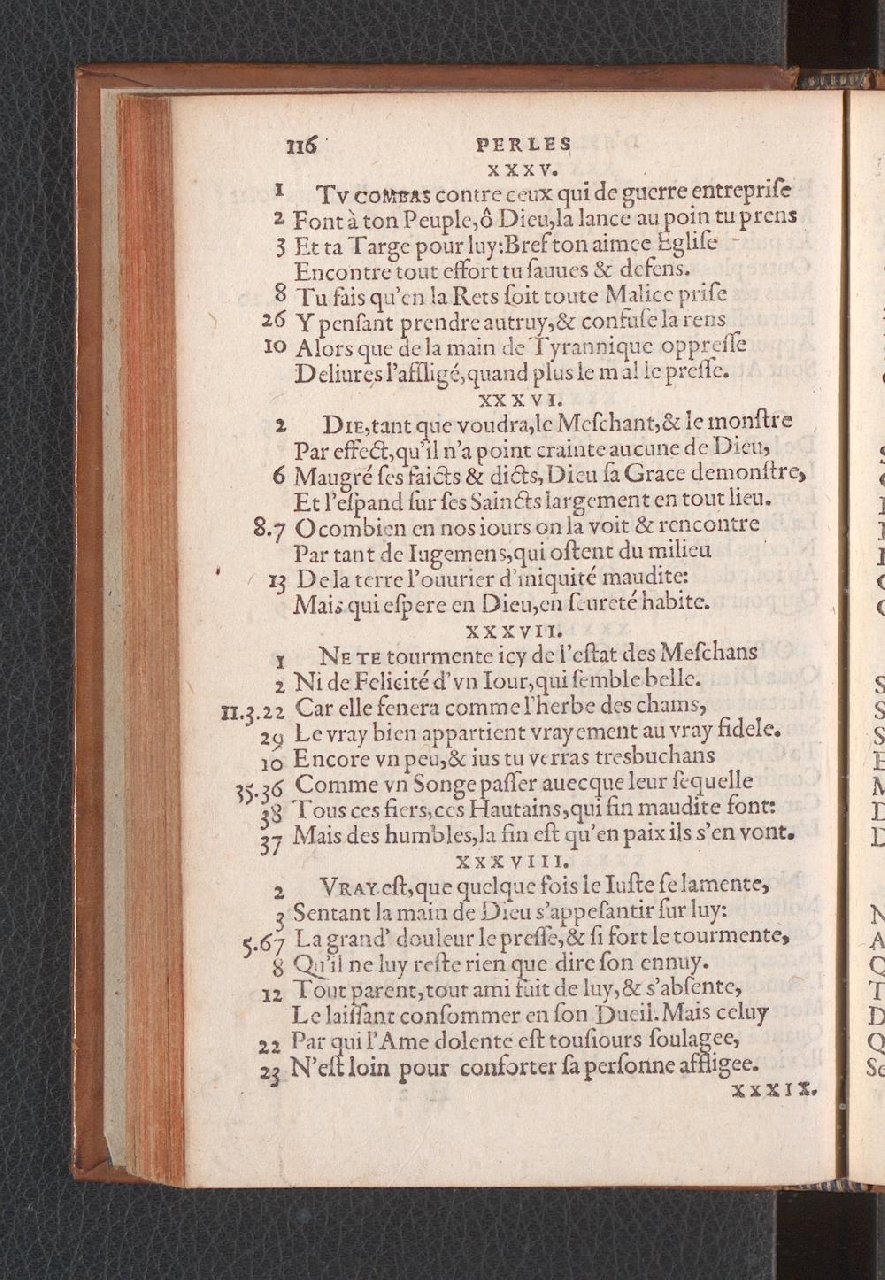 116 PERLES
XXXV.
1 TV COMBAS contre ceux qui de guerre entrepriſe
2 Font à ton Peuple, ô Dieu, la lance au poin tu prens
3 Et ta Targe pour luy: Bref ton aimee Egliſe
Encontre tout effort tu ſauues & defens.
8 Tu fais qu'en la Rets ſoit toute Malice priſe
26 Y penſant prendre autruy, & confuſe la rens
10 Alors que de la main de Tyrannique oppreſſe
Deliures l'affligé, quand plus le mal le preſſe.
XXXVI.
2 DIE, tant que voudra, le Meſchant, & le monſtre
Par effect, qu'il n'a point crainte aucune de Dieu,
6 Maugré ſes faicts & dicts, Dieu ſa Grace demonſtre,
Et l'eſpand ſur ſes Saincts largement en tout lieu.
8.7 O combien en nos iours on la voit & rencontre
Par tant de Iugemens, qui oſtent du milieu
13 De la terre l'ouurier d'iniquité maudite:
Mais qui eſpere en Dieu, en ſeureté habite.
XXXVII.
1 NE TE tourmente icy de l'eſtat des Meſchans
2 Ni de Felicité d'vn Iour, qui ſemble belle.
11.3.22 Car elle fenera comme l'herbe des chams,
29 Le vray bien appartient vrayement au vray fidele.
10 Encore vn peu, & ius tu verras tresbuchans
35.36 Comme vn Songe paſſer auecque leur ſequelle
38 Tous ces fiers, ces Hautains, qui fin maudite font:
37 Mais des humbles, la fin eſt qu'en paix ils s'en vont.
XXXVIII.
2 VRAY eſt, que quelque fois le Iuſte ſe lamente,
3 Sentant la main de Dieu s'appeſantir ſur luy:
5.67 La grand' douleur le preſſe, & ſi fort le tourmente,
8 Qu'il ne luy reſte rien que dire ſon ennuy.
12 Tout parent, tout ami fuit de luy, & s'abſente,
Le laiſſant conſommer en ſon Dueil. Mais celuy
22 Par qui l'Ame dolente eſt touſiours ſoulagee,
23 N'eſt loin pour conforter ſa perſonne affligee.
XXXIX.